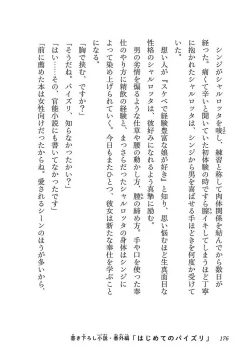 シンジがシャルロッタを唆し、練習と称して肉体関係を結んでから数日が
経った。痛くて辛いと聞いていた初体験の時ですら膣イキしてしまうほど丁寧
に抱かれたシャルロッタは、シンジから男を喜ばせる手ほどきを何度か受けて
いた。
想い人が『スケベで経験豊富な娘が好き』と知り、思い悩むほど生真面目な
性格のシャルロッタは、彼好みになれるよう真摯に励む。
男の劣情を煽るような仕草や腰の動かし方、膣の締め方、手や口を使った奉
仕のやり方に精飲の経験と、まっさらだったシャルロッタの身体はシンジに
よって染め上げられていく。今日もまたひとつ、彼女は新たな奉仕を学ぶこと
になる。
「胸で挟む、ですか？」
「そうだね。パイズリ、知らなかったかい？」
「はい……その、官能小説にも書いてなかったので……」
「前に薦めた本は女性向けだったからね。愛されるシーンのほうが多いから、
書き下ろし小説・番外編「はじめてのパイズリ」 176